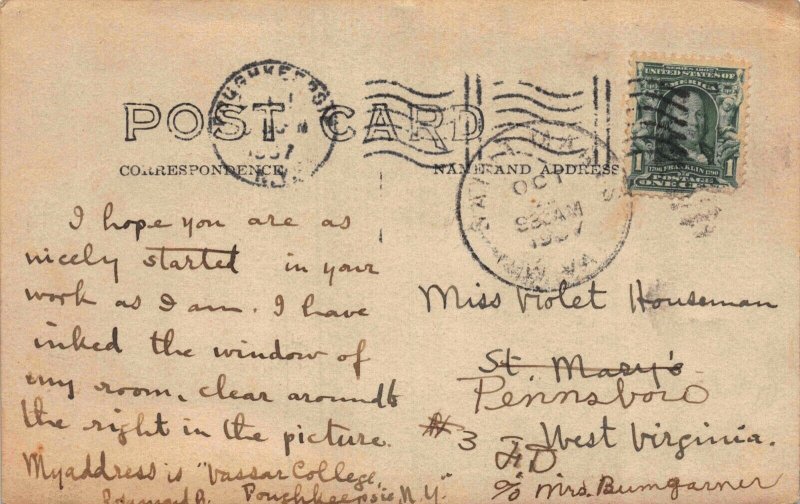 POUGHKEEPSIE
1907
N.Y.
POST CARD
CORRESPONDENCE
NAME AND ADDRESS
OCT
930AM
1907
W.VA.
SERIES 1902
UNITED STATES OF
1706 FRANKLIN 1790
1 1
POSTAGE
ONE CENT
I hope you are as
nicely started in your
work as I am. I have
inked the window of
my room, clear around to
the right in the picture.
My address is "Vassar College,
Poughkeepsie, N.Y."
Miss Violet Houseman
St. Mary's
Pennsboro
#3
West Virginia.
% Mrs. Bumgarner